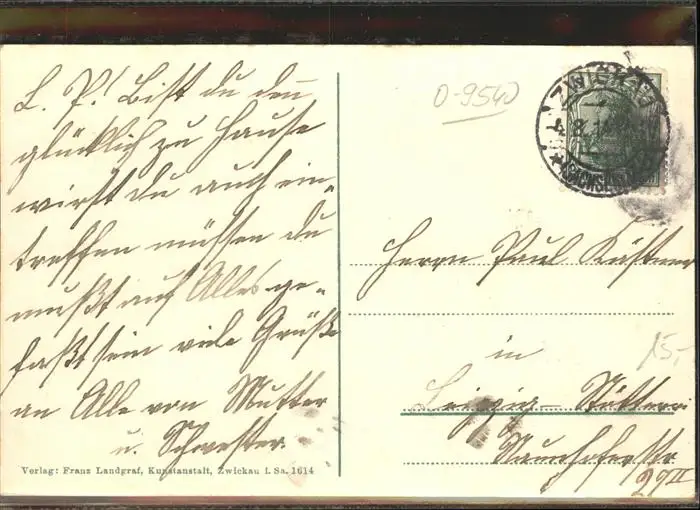 L. P.! Bist du den
glücklich zu Hause
wirst du auch ein-
treffen müssen du
mußt auf Alles ge-
faßt sein viele Grüße
an Alle von Mutter
u. Schwester.
Verlag: Franz Landgraf, Kunstanstalt, Zwickau i. Sa. 1614
0-9540
ZWICKAU
(SACHSEN)
Herrn Paul Kästner
15,-
in
Leipzig-Stötteri
Naunhoferstr
29 II